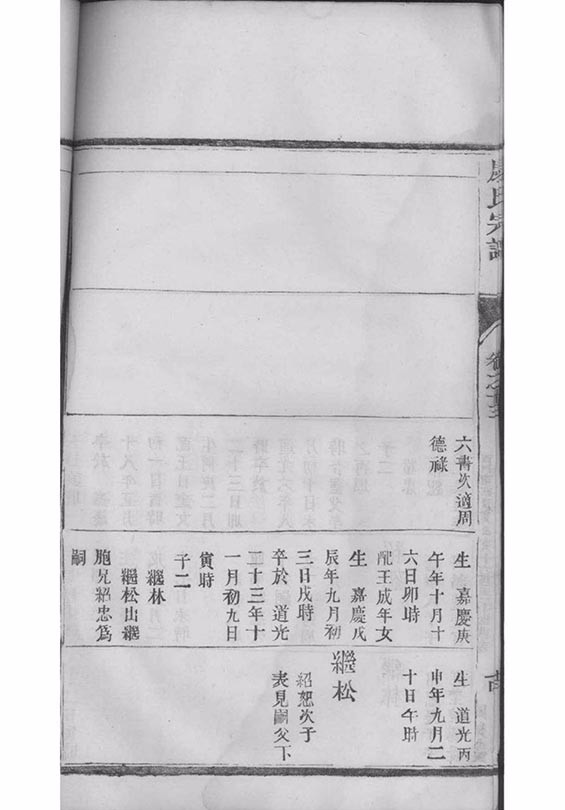 氏宗譜
六書次適周
德祿
生 嘉慶庚
午年十月十
六日卯時
配王成年女
生 嘉慶戊
辰年九月初
三日戌時
卒於 道光
二十三年十
一月初九日
寅時
子二
繼林
繼松出繼
胞兄紹忠為
嗣
生 道光丙
申年九月二
十日午時
繼松
紹恕次子
表見嗣父下